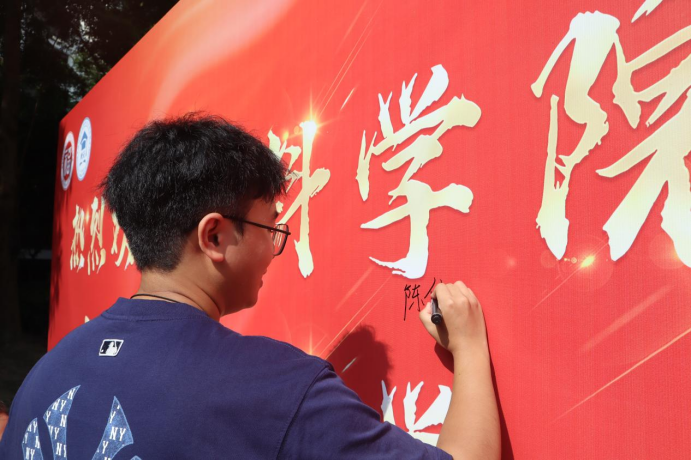 热烈欢
科学院
陈
NY